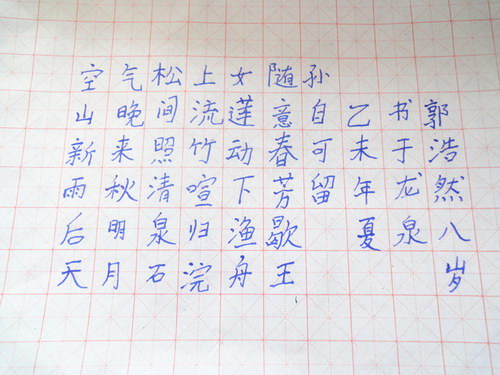 空山新雨后天
气晚来秋明月
松间照清泉石
上流竹喧归浣
女莲动下渔舟
随意春芳歇王
孙自可留
乙未年夏
书于龙泉
郭浩然八岁